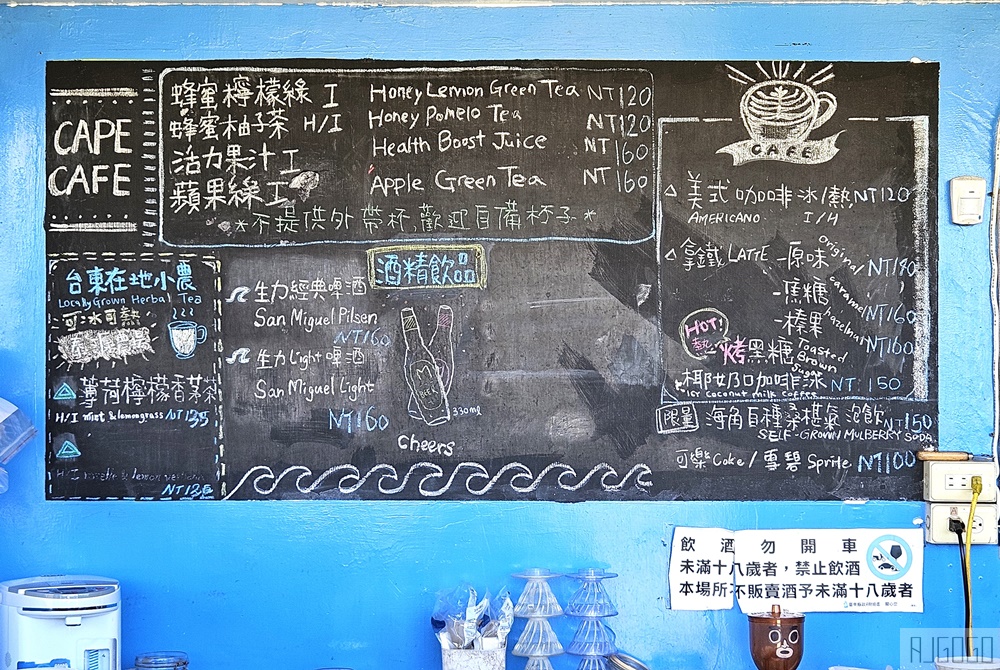 CAPE
CAFE
蜂蜜檸檬綠 I Honey Lemon Green Tea NT120
蜂蜜柚子茶 H/I Honey Pomelo Tea NT120
活力果汁 I Health Boost Juice NT160
蘋果綠 I Apple Green Tea NT160
*不提供外帶杯,歡迎自備杯子*
台東在地小農
Locally Grown Herbal Tea
可冰可熱
薄荷檸檬香茅茶
H/I mint & lemongrass NT135
H/I
酒精飲品
生力經典啤酒
San Miguel Pilsen
NT160
生力Light啤酒
San Miguel Light
NT160
BEER
330ml
Cheers
CAFE
美式咖啡 冰/熱 NT120
AMERICANO I/H
拿鐵 LATTE -原味 original
-焦糖 caramel NT160
-榛果 hazelnut NT160
HOT!
熱
烤黑糖 Toasted Brown Sugar
椰奶咖啡冰 NT.150
Icy Coconut Milk Coffee
限量 海角百種桑椹氣泡飲 NT150
SELF-GROWN MULBERRY SODA
可樂 Coke / 雪碧 Sprite NT100
飲酒勿開車
未滿十八歲者，禁止飲酒
本場所不販賣酒予未滿十八歲者
AJGOGO